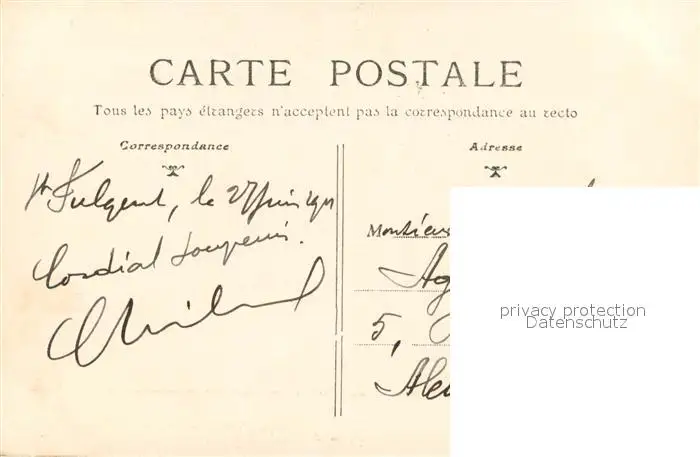 CARTE POSTALE
Tous les pays étrangers n'acceptent pas la correspondance au recto
Correspondance
Adresse
St Fulgent, le 27 Juin 1911
Cordial souvenir.
Monsieur
Ag
5,
Ale
privacy protection
Datenschutz